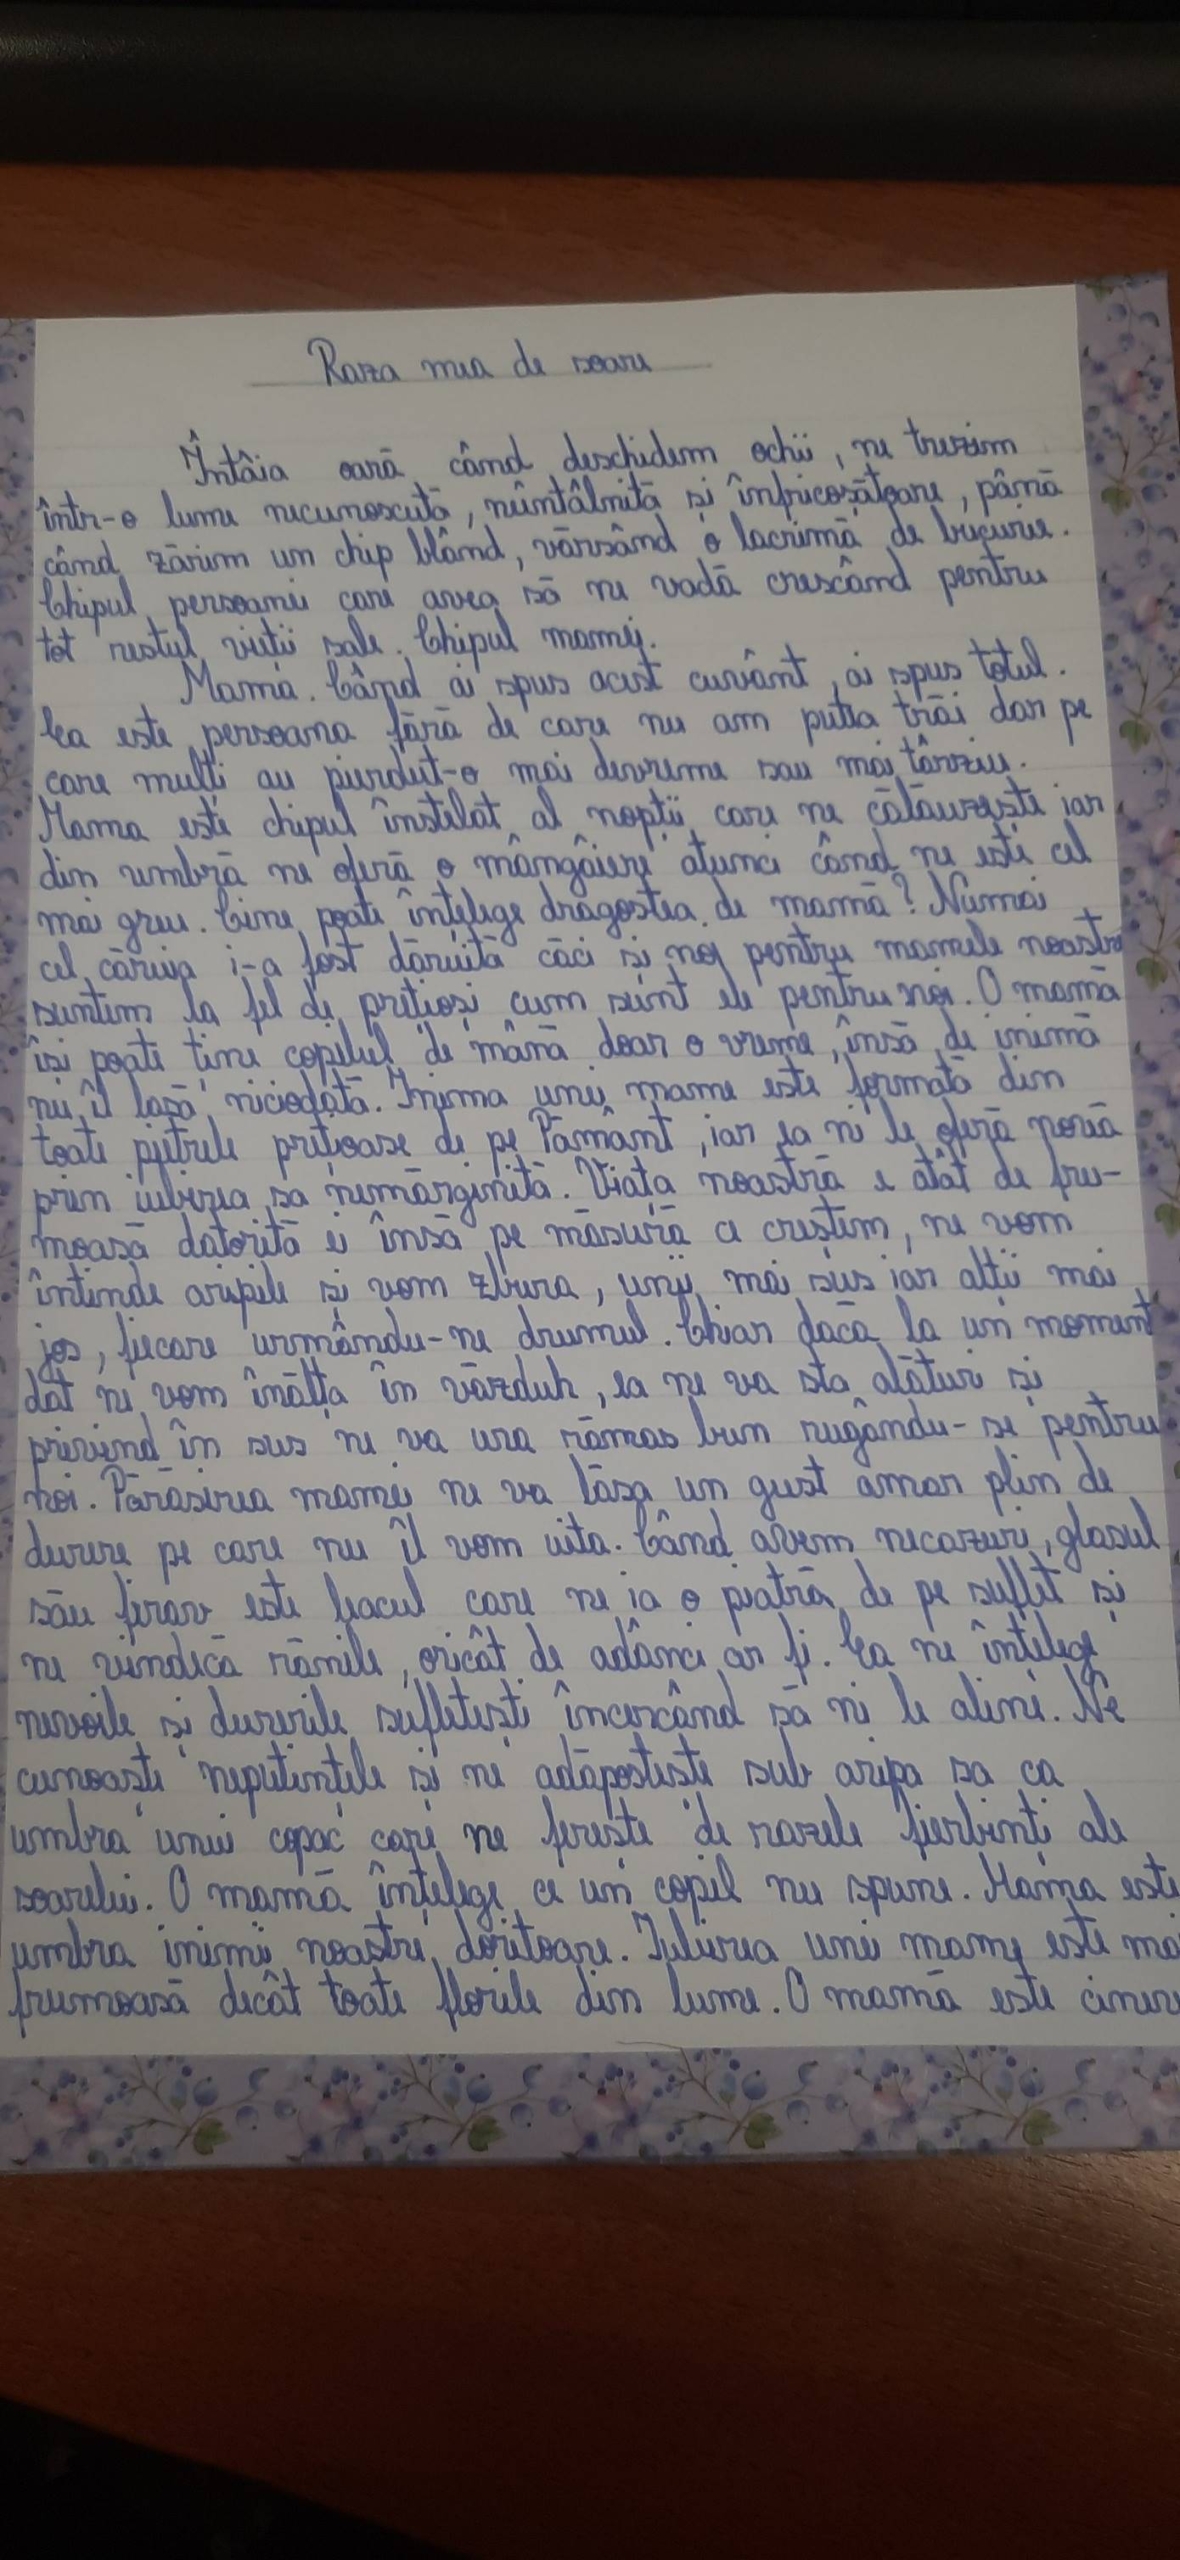 Raza mea de soare
Întâia oară când deschidem ochii, ne trezim
într-o lume necunoscută, neîntâlnită și înfricoșătoare, până
când zărim un chip blând, vărsând o lacrimă de bucurie.
Chipul persoanei care avea să ne vadă crescând pentru
tot restul vieții sale. Chipul mamei.
Mama. Când ai spus acest cuvânt, ai spus totul.
Ea este persoana fără de care nu am putea trăi dar pe
care mulți au pierdut-o mai devreme sau mai târziu.
Mama este chipul înstelat al nopții care ne călăuzește iar
din umbră ne oferă o mângâiere atunci când ne este cel
mai greu. Cine poate înțelege dragostea de mamă? Numai
cel căruia i-a fost dăruită căci și noi pentru mamele noastre
suntem la fel de prețioși cum sunt ele pentru noi. O mamă
își poate ține copilul de mână doar o vreme, însă de inimă
nu îl lasă niciodată. Inima unei mame este formată din
toate pietrele prețioase de pe Pământ, iar ea ni le oferă nouă
prin iubirea sa nemărginită. Viața noastră e atât de fru-
moasă datorită ei însă pe măsură ce creștem, ne vom
întinde aripile și vom zbura, unii mai sus iar alții mai
jos, fiecare urmându-ne drumul. Chiar dacă la un moment
dat ne vom înălța în văzduh, ea ne va sta alături și
privind în sus ne va ura rămas bun rugându-se pentru
noi. Părăsirea mamei ne va lăsa un gust amar plin de
durere pe care nu îl vom uita. Când avem necazuri, glasul
său firav este leacul care ne ia o piatră de pe suflet și
ne vindecă rănile, oricât de adânci ar fi. Ea ne înțelege
nevoile și durerile sufletești încercând să ni le aline. Ne
cunoaște neputințele și ne adăpostește sub aripa sa ca
umbra unui copac care ne ferește de razele fierbinți ale
soarelui. O mamă înțelege ce un copil nu spune. Mama este
umbra inimii noastre doritoare. Iubirea unei mame este mai
frumoasă decât toate florile din lume. O mamă este